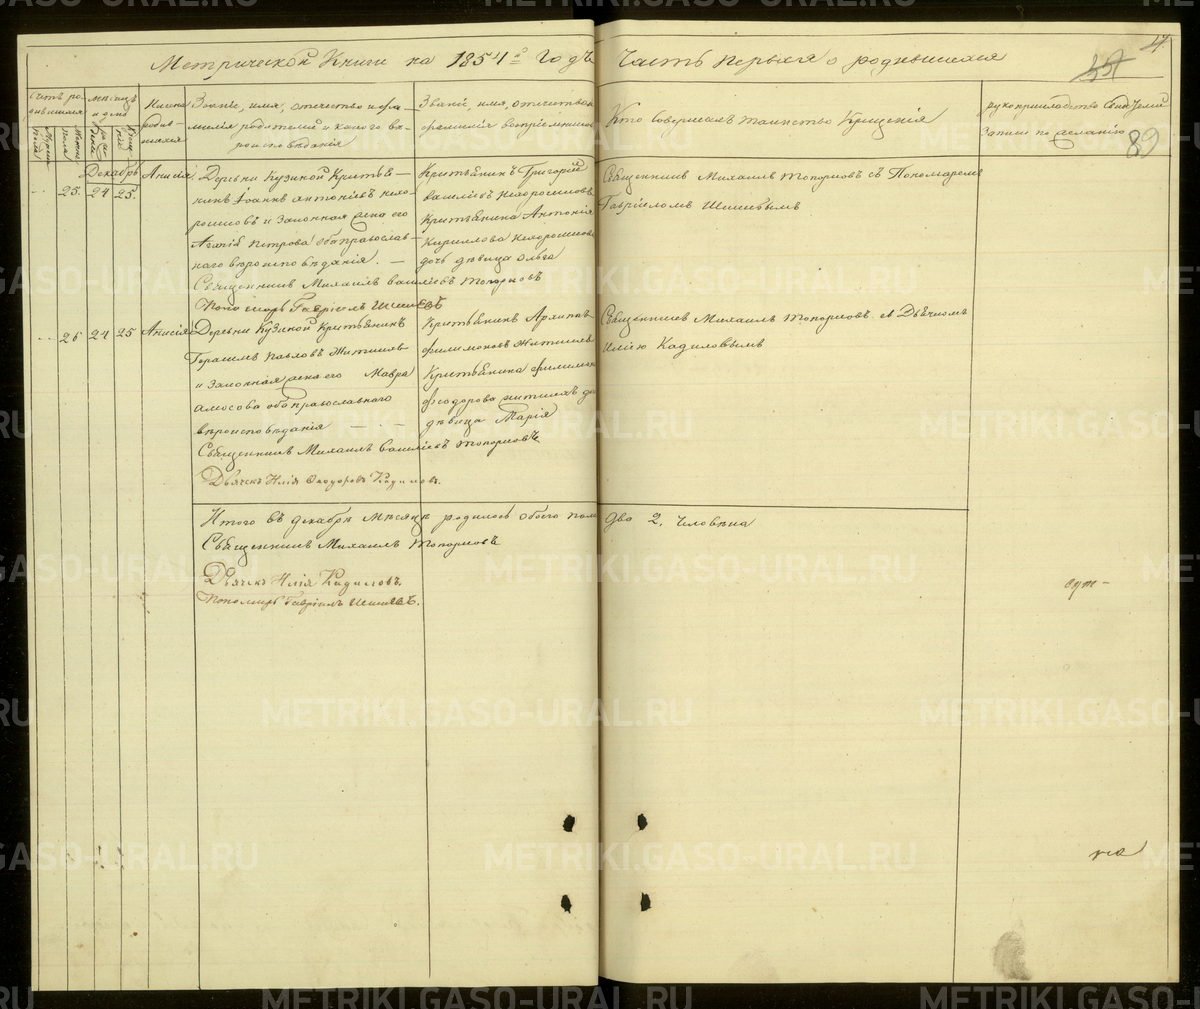 Метрической Книги на 1854й Годъ Часть первыя о родившихся
Счетъ родившихся
Мѣсяцъ и день
Имена родившихся
Званіе, имя, отчество и фамилія родителей и какого вѣроисповѣданія
Званіе, имя, отчество и фамилія воспріемниковъ
Кто совершалъ таинство Крещенія
рукоприкладство свидѣтелей записи по желанію
89
Декабрь
25. 24 25. Анисія
Деревни Кузиной Крестьянинъ Іоаннъ Антоніевъ Нехорошковъ и Законная жена его
Агапія Петрова оба православнаго вѣроисповѣданія. —
Крестьянинъ Григорій Василіевъ Нехорошковъ
Крестьянина Антонія Кириллова Нехорошкова дочь дѣвица Ольга
Священникъ Михаилъ Топорковъ съ Пономаремъ
Гавріиломъ Шишевымъ
Священникъ Михаилъ Василіевъ Топорковъ
Пономарь Гавріилъ Шишевъ
26 24 25 Анисія
Деревни Кузиной Крестьянинъ
Герасимъ Павловъ
и Законная жена его Мавра
Амосова оба православнаго
вѣроисповѣданія — —
Крестьянинъ Архипъ
Филимоновъ
Крестьянина Филимона
Феодорова
дѣвица Марія
Священникъ Михаилъ Топорковъ съ Дьячкомъ
Иліею Кадиловымъ
Священникъ Михаилъ Василіевъ Топорковъ
Дьячекъ Илія Феодоровъ Кадиловъ.
Итого въ декабрѣ Мѣсяцѣ родилось обоего пола два 2, человѣка
Священникъ Михаилъ Топорковъ
Дьячекъ Илія Кадиловъ.
Пономарь Гавріилъ Шишевъ.
METRIKI.GASO-URAL.RU